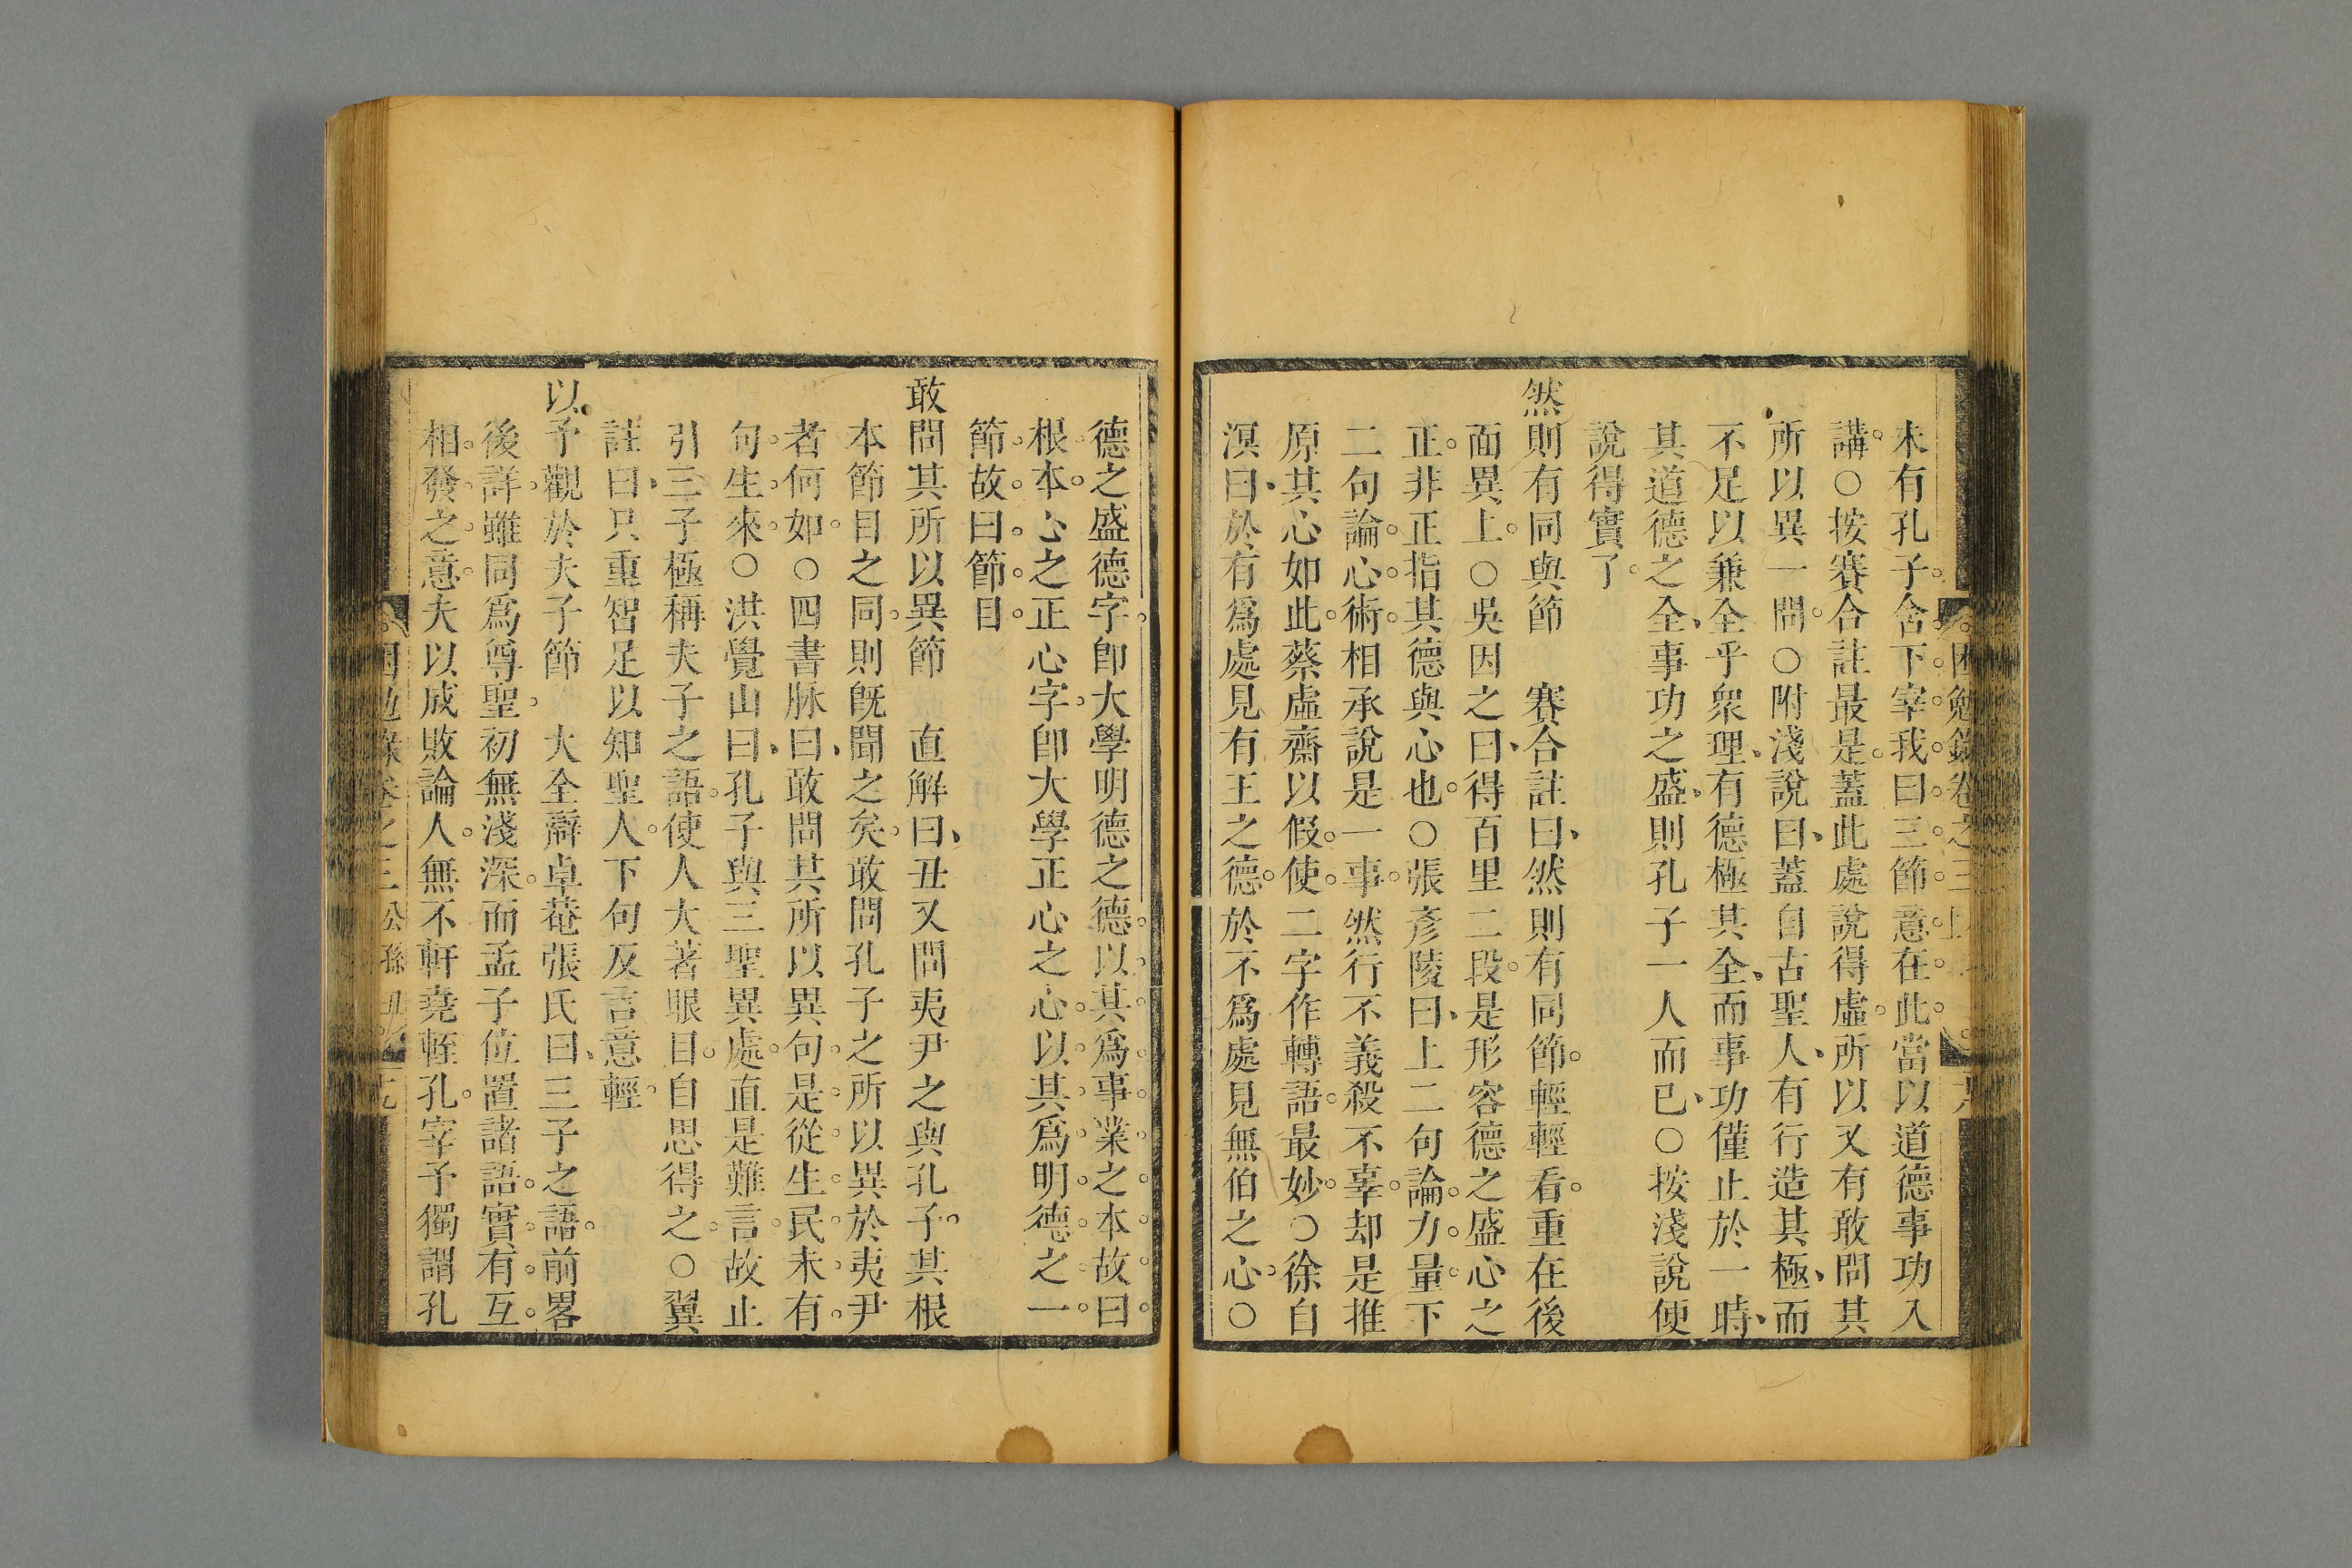 未有孔子舍下宰我曰三節意在此當以道德事功入
講○按賽合註最是蓋此處說得虛所以又有敢問其
所以異一問○附淺說曰蓋自古聖人有行造其極而
不足以兼全乎衆理有德極其全而事功僅止於一時
其道德之全事功之盛則孔子一人而已○按淺說便
說得實了
然則有同與節　賽合註曰然則有同節輕輕看重在後
面異上○吳因之曰得百里二段是形容德之盛心之
正非正指其德與心也○張彥陵曰上二句論力量下
二句論心術相承說是一事然行不義殺不辜却是推
原其心如此蔡虛齋以假使二字作轉語最妙○徐自
溟曰於有為處見有王之德於不為處見無伯之心○
德之盛德字卽大學明德之德以其為事業之本故曰
根本心之正心字卽大學正心之心以其為明德之一
節故曰節目
敢問其所以異節　直解曰丑又問夷尹之與孔子其根
本節目之同則旣聞之矣敢問孔子之所以異於夷尹
者何如○四書脉曰敢問其所以異句是從生民未有
句生來○洪覺山曰孔子與三聖異處直是難言故止
引三子極稱夫子之語使人大著眼目自思得之○翼
註曰只重智足以知聖人下句反言意輕
以予觀於夫子節　大全辯卓菴張氏曰三子之語前畧
後詳雖同為尊聖初無淺深而孟子位置諸語實有互
相發之意夫以成敗論人無不軒堯輊孔宰予獨謂孔